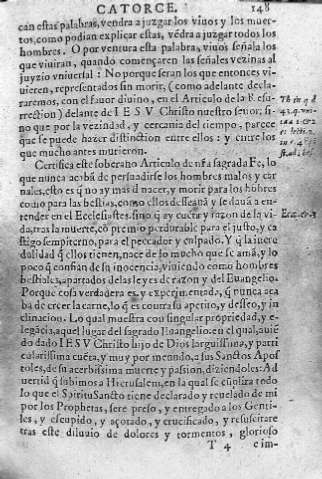 CATORCE. 148
can estas palabras, vendra a juzgar los viuos y los muer-
tos, como podian explicar estas, vẽdra a juzgar todos los
hombres. O por ventura esta palabra, viuos señala los
que viuiran, quando començaren las señales vezinas al
juyzio vniuersal: No porque seran los que entonces vi-
uieren, representados sin morir, (como adelante decla-
raremos, con el fauor diuino, en el Articulo de la Resu-
rrection) delante de IESV Christo nuestro señor: si-
no que por la vezindad, y cercania del tiempo, parece
que se puede hazer distinction entre ellos: y entre los
que mucho antes murieron.
Certifica este soberano Articulo de nr̃a sagrada Fe, lo
que nunca acabã de persuadirse los hombres malos y car
nales, esto es q̃ no ay mas d̃ nacer, y morir para los hõbres
como para las bestias, como ellos desseauã
tender en el Ecclesiastes. sino q̃ ay cuẽta y razon de la vi-
da, tras la muerte, cõ premio perdurable para el justo, y ca
stigo sempiterno, para el peccador y culpado. Y q̃ la incre
dulidad q̃ ellos tienen, nace de lo mucho que se amã, y lo
poco q̃ confian de su inocencia, viuiendo como hombres
bestiales, apartados de la ley es de razon y del Euangelio.
Porque cosa verdadera es, y experimentada, q̃ nunca aca
bã de creer la carne, lo q̃ es contra su apetito, y desseo, y in
clinacion. Lo qual muestra con singular propriedad, y e-
legãcia, aquel lugar del sagrado Euangelio. en el qual, auiẽ
do dado IESV Christo hijo de Dios larguissima, y parti
cularissima cuẽta, y muy por menudo, a sus Sanctos Apos
toles, de su acerbissima muerte y passion, diziendoles: Ad
uertid q̃ subimos a Hierusalem, en la qual se cũplira todo
lo que el Spiritu Sancto tiene declarado y reuelado de mi
por los Prophetas, sere preso, y entregado a los Genti-
les, y escupido, y açotado, y crucificado, y resuscitare
tras este diluuio de dolores y tormentos, glorioso
T 4 e im-